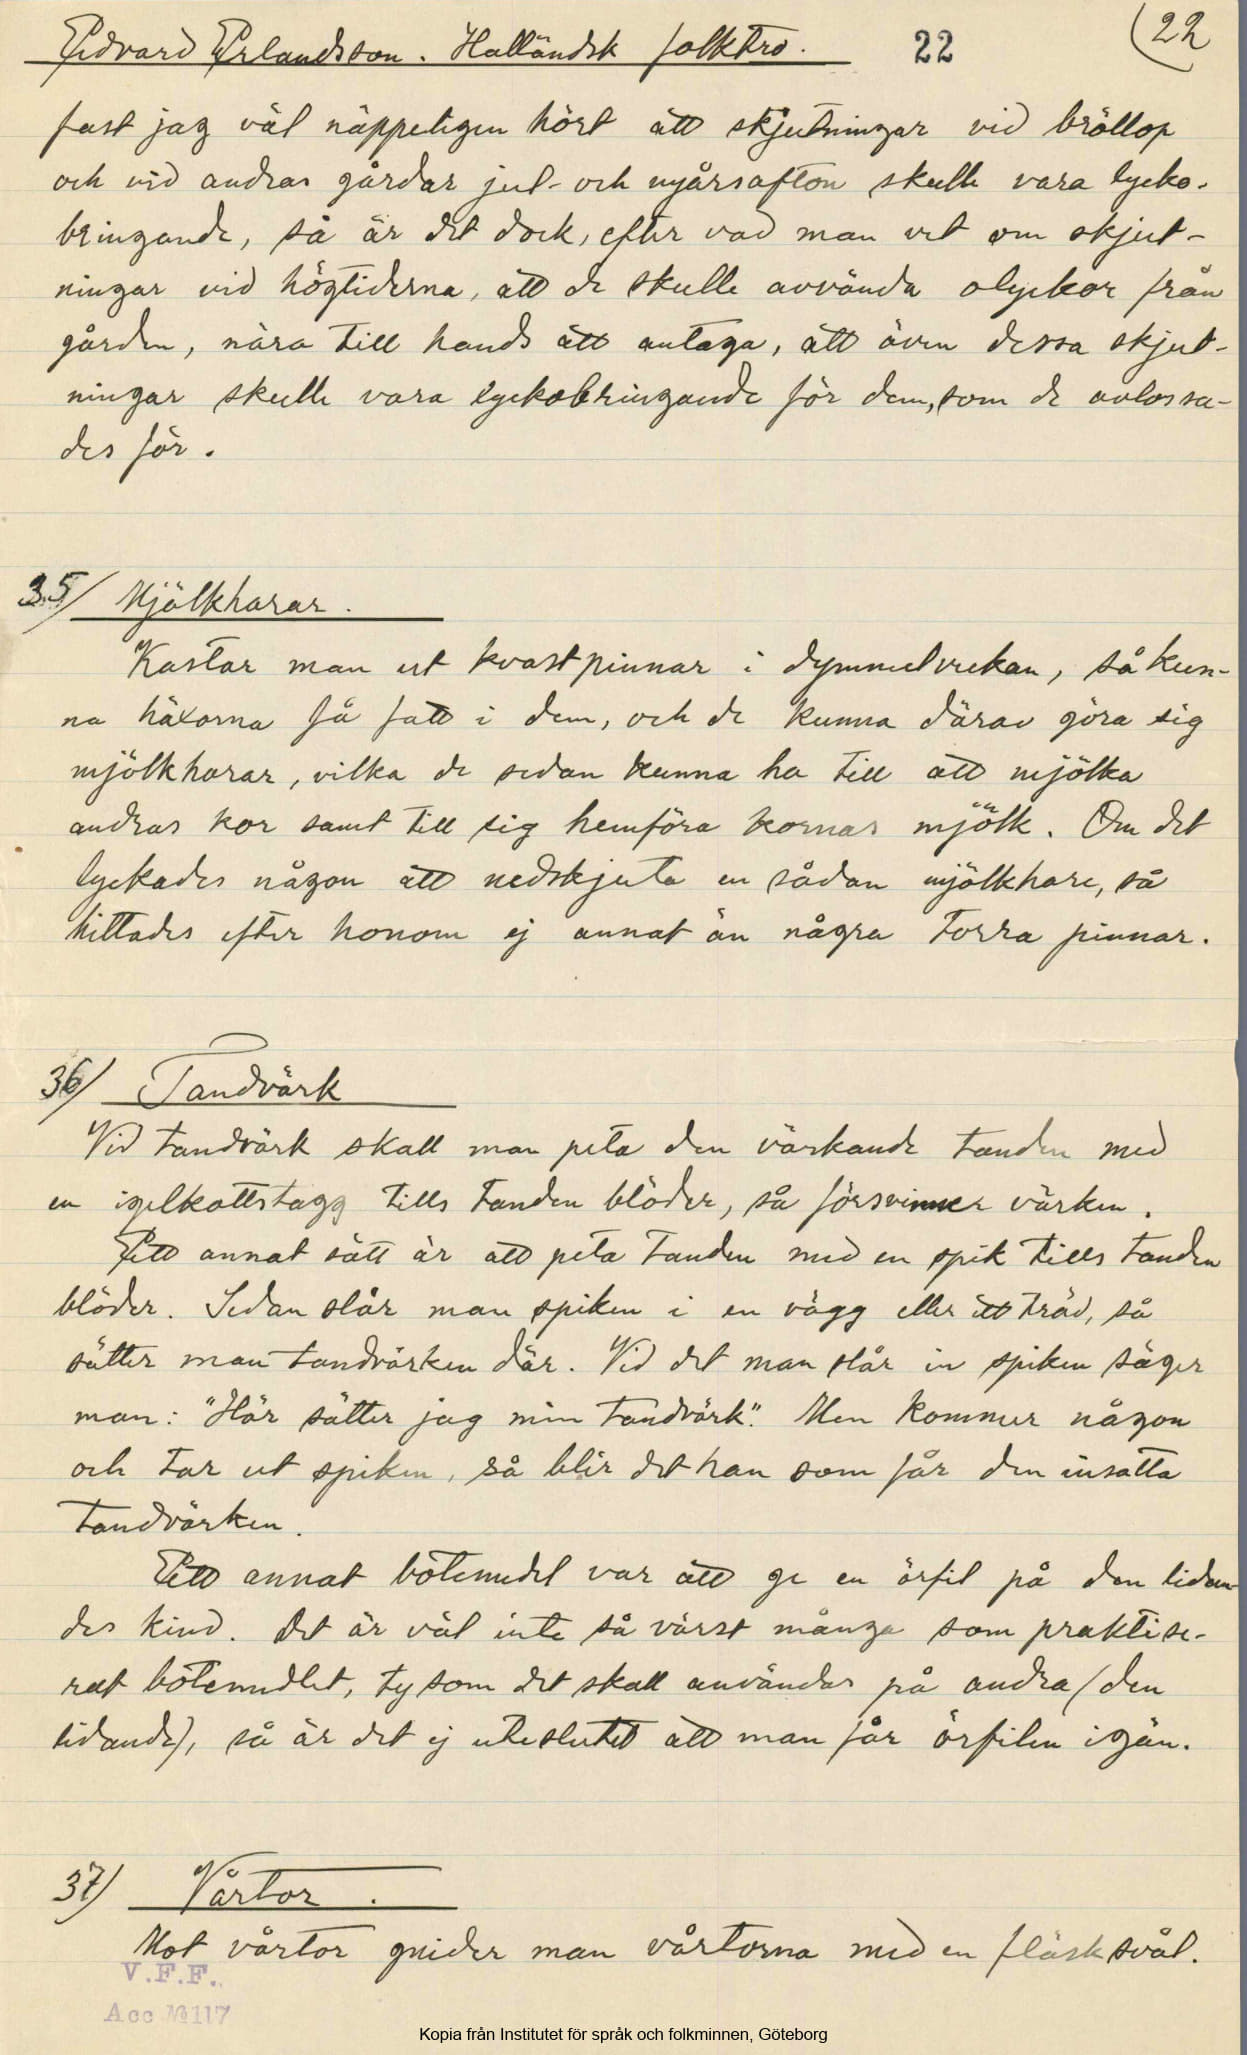 Edvard Erlandsson. Halländsk folktro. 22 (22
fast jag väl näppeligen hört att skjutningar vid bröllop
och vid andras gårdar jul- och nyårsafton skulle vara lycko-
bringande, så är det dock, efter vad man vet om skjut-
ningar vid högtiderna, att de skulle avvända olyckor från
gården, nära till hands att antaga, att även dessa skjut-
ningar skulle vara lyckobringande för dem, som de avlossa-
des för.
35/ Mjölkharar.
Kastar man ut kvastpinnar i dymmelveckan, så kun-
na häxorna få fatt i dem, och de kunna därav göra sig
mjölkharar, vilka de sedan kunna ha till att mjölka
andras kor samt till sig hemföra kornas mjölk. Om det
lyckades någon att nedskjuta en sådan mjölkhare, så
hittades efter honom ej annat än några torra pinnar.
36/ Tandvärk
Vid tandvärk skall man peta den värkande tanden med
en igelkottstagg tills tanden blöder, så försvinner värken.
Ett annat sätt är att peta tanden med en spik tills tanden
blöder. Sedan slår man spiken i en vägg eller ett träd, så
sätter man tandvärken där. Vid det man slår in spiken säger
man: "Här sätter jag min tandvärk". Men kommer någon
och tar ut spiken, så blir det han som får den insatta
tandvärken.
Ett annat botemedel var att ge en örfil på den lidan-
des kind. Det är väl inte så värst många som praktise-
rat botemedlet, ty som det skall användas på andra (den
lidande), så är det ej uteslutet att man får örfilen igän.
37) Vårtor.
Mot vårtor gnider man vårtorna med en fläsksvål.
V.F.F.
Acc №117
Kopia från Institutet för språk och folkminnen, Göteborg